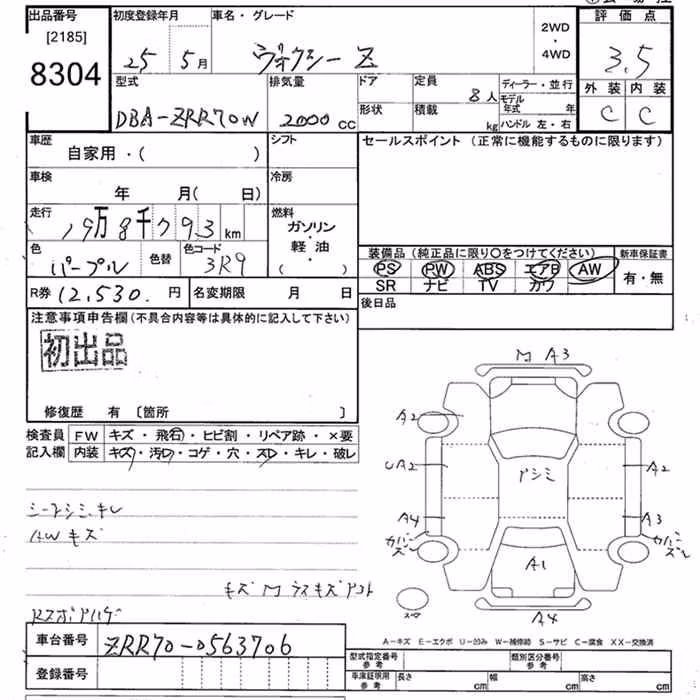 出品番号 初度登録年月 車名・グレード 2WD・4WD 評価点
[2185]
8304
25 5月 ヴォクシー Z 3.5
型式 排気量 ドア 定員 8人 ディーラー・並行 外装 内装
DBA-ZRR70W 2000cc 形状 積載 kg モデル年式 年 C C
ハンドル 左・右
車歴 シフト セールスポイント(正常に機能するものに限ります)
自家用・( )
車検 冷房
年 月( 日)
走行 燃料
19万8千793km ガソリン
軽・油
( )
色 色替 色コード 装備品(純正品に限り○をつけてください) 新車保証書
パープル 3R9 PS PW ABS エアB AW 有・無
SR ナビ TV カワ
R券 12,530.円 名変期限 月 日 後日品
注意事項申告欄(不具合内容等は具体的に記入して下さい)
初出品
修復歴 有 [箇所 ]
検査員 FW キズ・飛石・ヒビ割・リペア跡・×要
記入欄 内装 キズ・汚レ・コゲ・穴・スレ・キレ・破レ
シートシミ・キレ
AW キズ
M A3
A2
UA2 A2
シミ
A4 A3
カバー カバー
A1
A4
A-キズ E-エクボ U-凹み W-補修跡 S-サビ C-腐食 XX-交換済
車台番号 ZRR70-0563706
登録番号
型式指定番号 参考 類別区分番号 参考
車庫証明用 参考 長さ cm 幅 cm 高さ cm